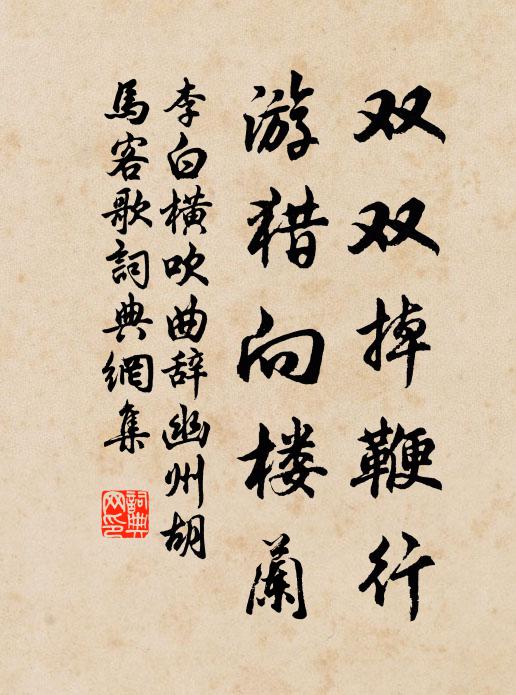 双双掉鞭行
游猎向楼兰
李白横吹曲辞幽州胡
馬客歌詞典網集
詞典
网印